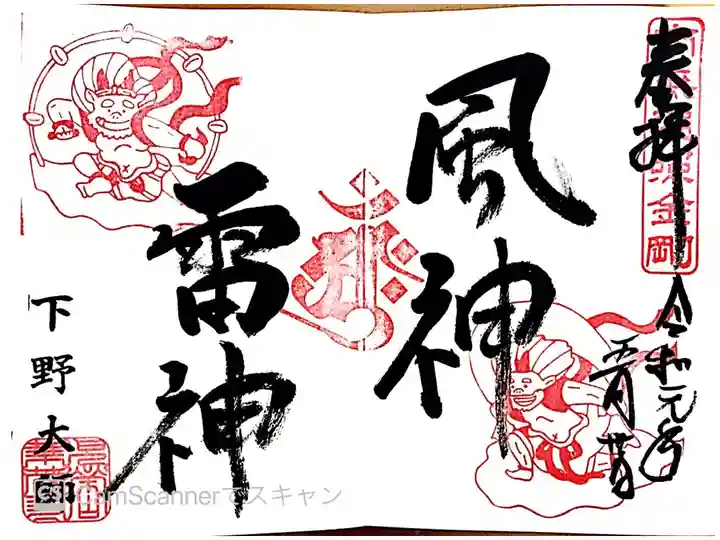 奉拝
令和元年
五月
風神
雷神
下野大師
CamScannerでスキャン